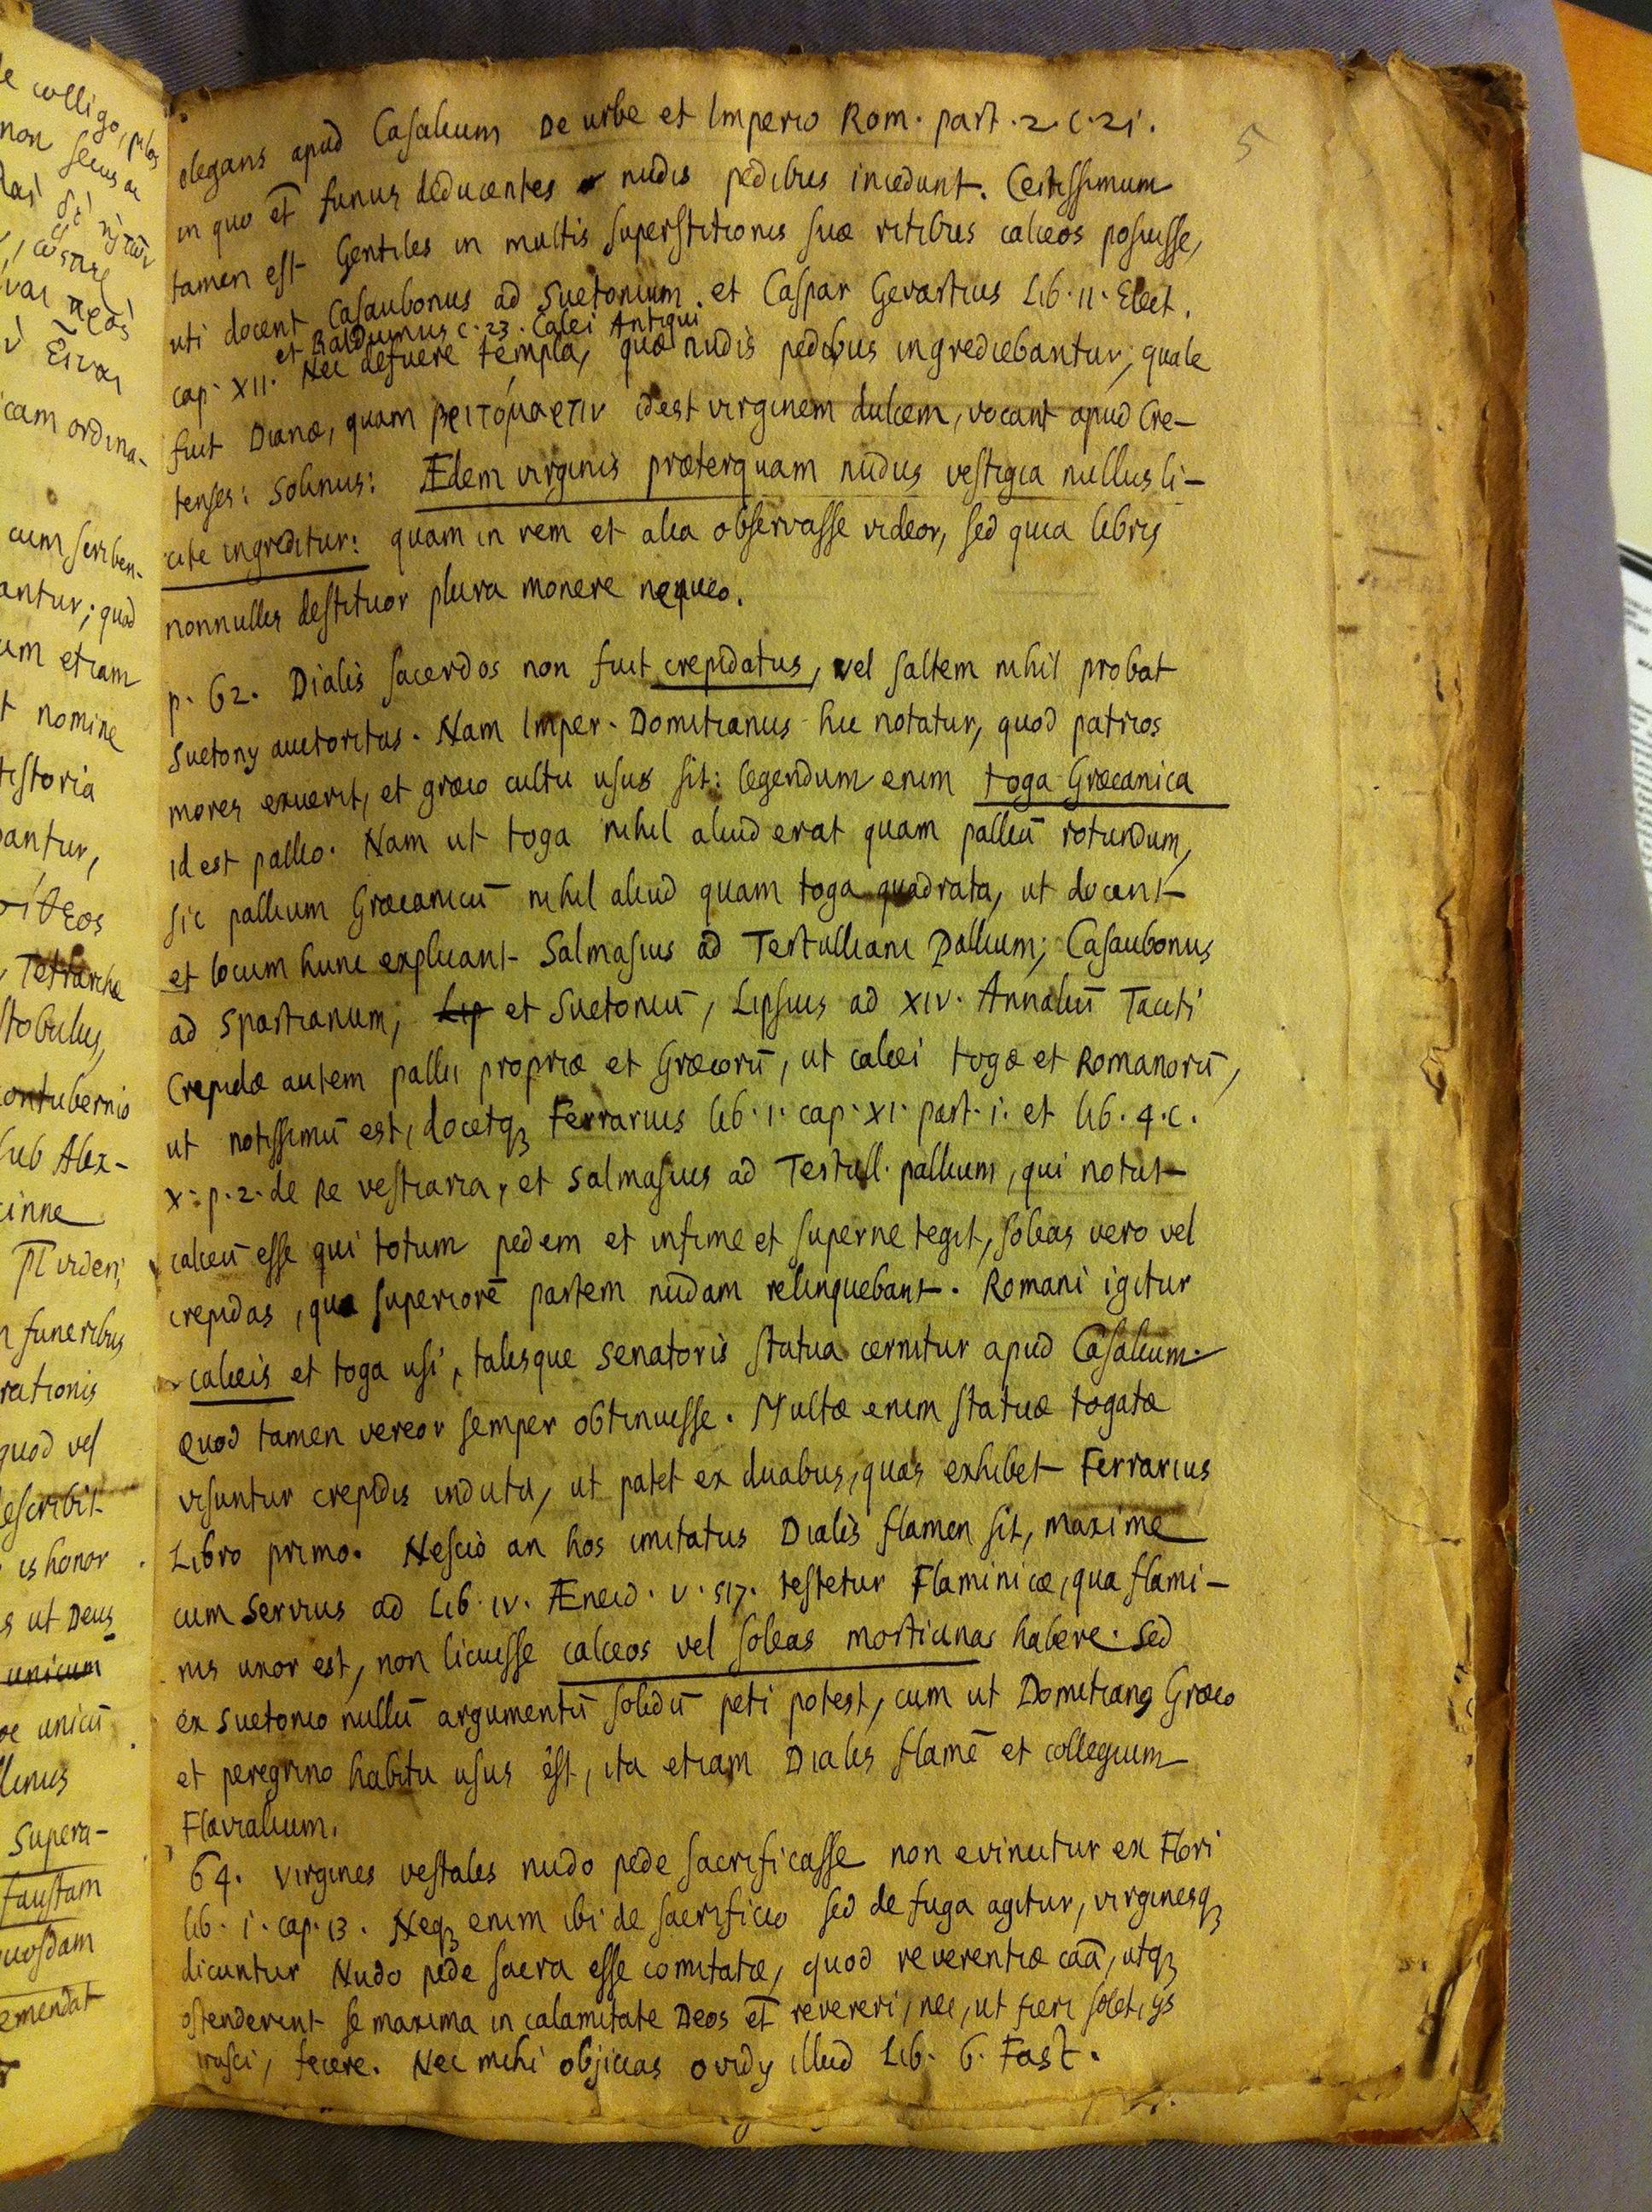 le colligo, pilos
non secus ac
cam ordina-
cum scriben-
antur; quod
um etiam
t nomine
istoria
antur,
Tetrarcha
stobulus,
contubernio
sub Alex-
cinne
videri,
n funeribus
rationis
quod vel
escribit
is honor
s ut Deus
unicum
oe unicū
llinus
Supera-
faustam
uosdam
emendat
5
elegans apud Casalium De urbe et Imperio Rom. part. 2. c. 21.
in quo et̄ funus deducentes nudis pedibus incedunt. Certissimum
tamen est Gentiles in multis superstitionis suæ ritibus calceos posuisse,
uti docent Casaubonus ad Suetonium. et Caspar Gevartius Lib. II. Elect.
et Balduinus c. 23. Calcei Antiqui
cap. XII. Nec defuere templa, quæ nudis pedibus ingrediebantur, quale
fuit Dianæ, quam βριτόμαρτιν id est virginem dulcem, vocant apud Cre-
tenses: Solinus: Ædem virginis præterquam nudus vestigia nullus li-
cite ingreditur: quam in rem et alia observasse videor, sed quia libris
nonnullis destituor plura monere nequeo.
p. 62. Dialis sacerdos non fuit crepidatus, vel saltem nihil probat
Suetony auctoritas. Nam Imper. Domitianus hic notatur, quod patrios
mores exuerit, et græco cultu usus sit: legendum enim toga Græcanica
id est pallio. Nam ut toga nihil aliud erat quam palliū rotundum,
sic pallium Græcanicū nihil aliud quam toga quadrata, ut docent
et locum hunc explicant Salmasius ad Tertulliani Pallium; Casaubonus
ad Spartianum; Lip et Suetoniū, Lipsius ad XIV. Annaliū Taciti
Crepidæ autem pallii propriæ et Græcorū, ut calcei togæ et Romanorū,
ut notissimū est, docetqꝫ Ferrarius lib. 1. cap. XI. part. 1. et lib. 4. c.
X. p. 2. de Re vestiaria, et Salmasius ad Tertull. pallium, qui notat
calceū esse qui totum pedem et infime et superne tegit, soleas vero vel
crepidas, quæ superiorē partem nudam relinquebant. Romani igitur
calceis et toga usi, talisque Senatoris statua cernitur apud Casalium.
Quod tamen vereor semper obtinuisse. Multæ enim statuæ togatæ
visuntur crepidis indutæ, ut patet ex duabus, quas exhibet Ferrarius
Libro primo. Nescio an hos imitatus Dialis flamen sit, maxime
cum Servius ad Lib. IV. Æneid. v. 517. testetur Flaminicæ, quæ flami-
nis uxor est, non licuisse calceos vel soleas morticinas habere. Sed
ex Suetonio nullū argumentū solidū peti potest, cum ut Domitianꝰ Græco
et peregrino habitu usus est, ita etiam Dialis flamē et collegium
Flavialium.
64. Virgines vestales nudo pede sacrificasse non evincitur ex Flori
lib. 1. cap. 13. Neqꝫ enim ibi de sacrificio sed de fuga agitur, virginesqꝫ
dicuntur Nudo pede sacra esse comitatæ, quod reverentiæ caā, utqꝫ
ostenderent se maxima in calamitate Deos et̄ revereri, nec, ut fieri solet, ijs
irasci, fecere. Nec mihi objicias ovidy illud Lib. 6. Fast.